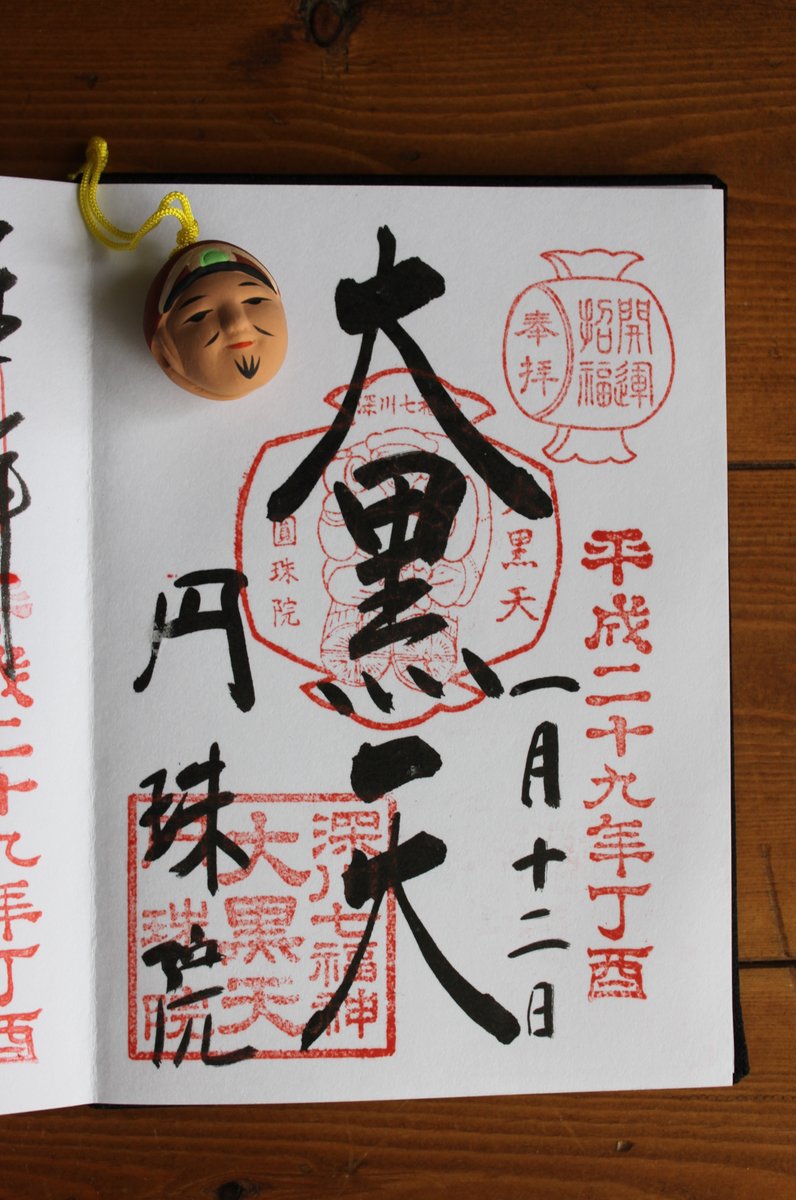 開運
招福
奉拝
平成二十九年丁酉
一月十二日
大黒天
深川七
黒天
圓珠院
円珠院
深川七福神
大黒天
珠院
二十九年丁酉